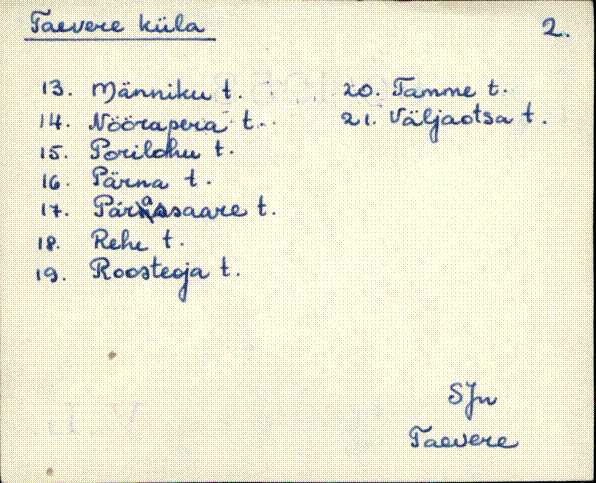 Taevere küla
2.
13. Männiku t.
14. Nöörapera t.
15. Porilohu t.
16. Pärna t.
17. saare t.
18. Rehe t.
19. Roosteoja t.
20. Tamme t.
21. Väljaotsa t.
SJn
Taevere